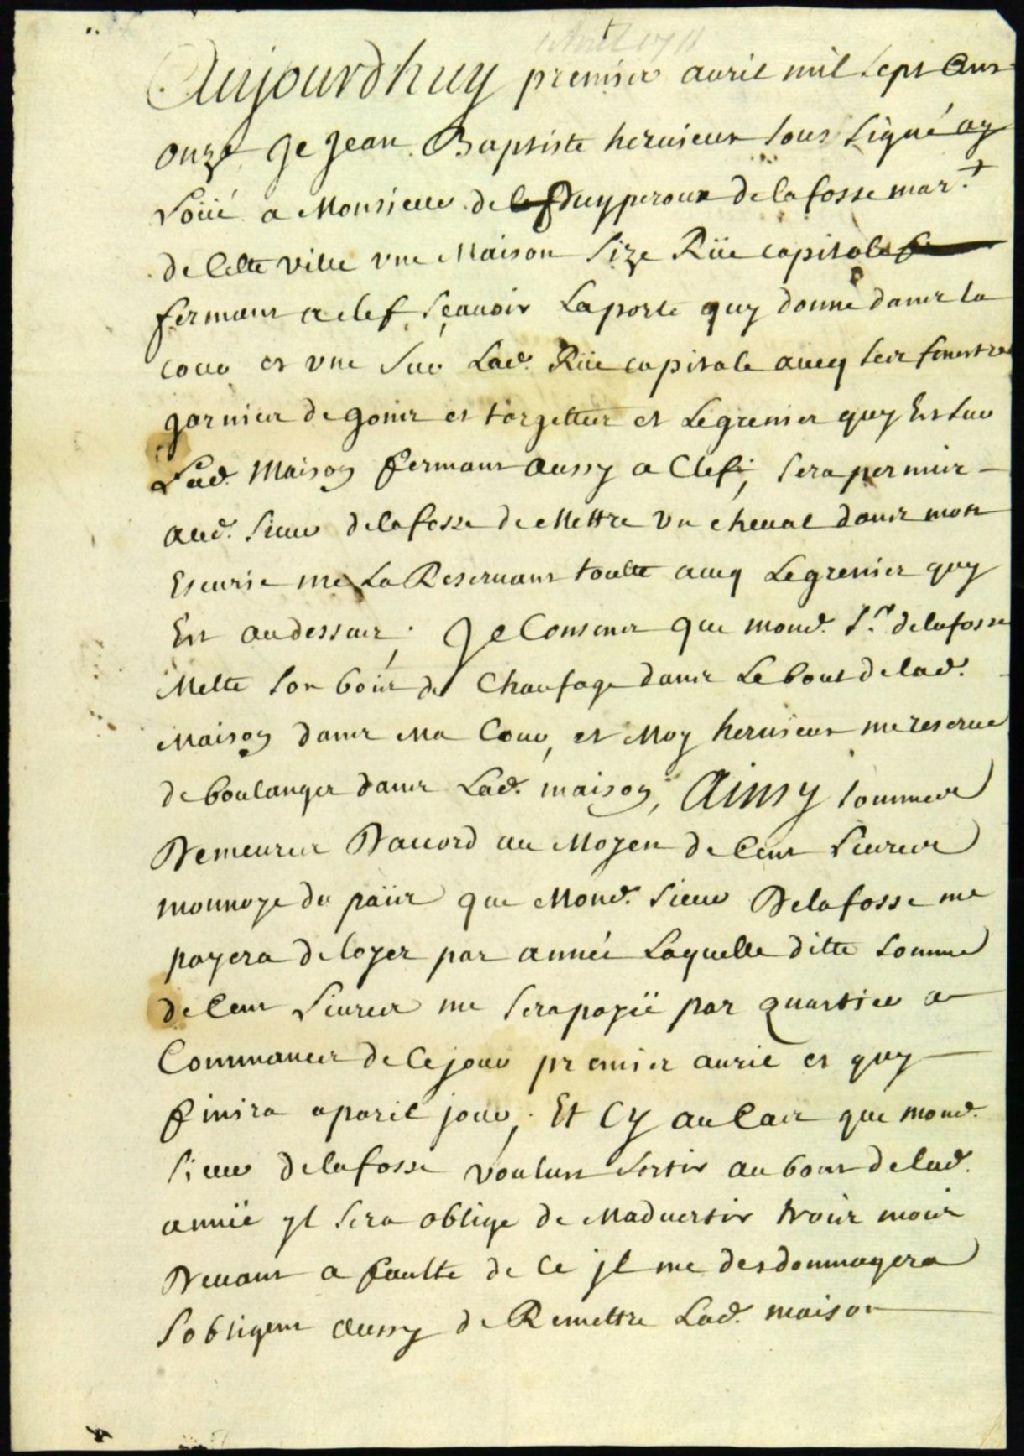 1 Avril 1711
Aujourdhuy premier auril mil sept Cens
onze Je Jean Baptiste heruieux sous signé ay
Loüé a Monsieur de Duyperoux de la fosse mar.
de Cette ville vne Maison size Rüe capitale
fermant a clef, sçauoir La porte quy donne dans la
cour et vne sur Lad. Rüe capitale auecq ses fenestres
garnies de gons et targettes et Le grenier quy Est sur
Lad. Maison fermant aussy a Clef; sera permis
aud. sieur delafosse de Mettre vn cheual dans mon
Escurie me La Reseruant toutte auecq Le grenier quy
Est au dessus; Je Consens que mond. Sr. delafosse
Mette son bois de Chaufage dans Le bout de lad.
Maison dans Ma Cour, et Moy heruieux me reserue
de boulanger dans Lad. maison, Ainsy sommes
Demeurés Daccord au Moyen de Cent Liures
monnoye du païs que Mond. sieur Delafosse me
payera de loyer par année Laquelle ditte somme
de Cent Liures me sera payëe par quartier a
Commancer de Ce jour premier auril et quy
finira a pareil jour; Et Cy au Cas que mond.
sieur delafosse voulut sortir au bout de lad.
annëe yl sera oblige de Maduertir trois mois
Deuant a faulte de Ce jl me desdommagera
sobligent Aussy de Remettre Lad. maison